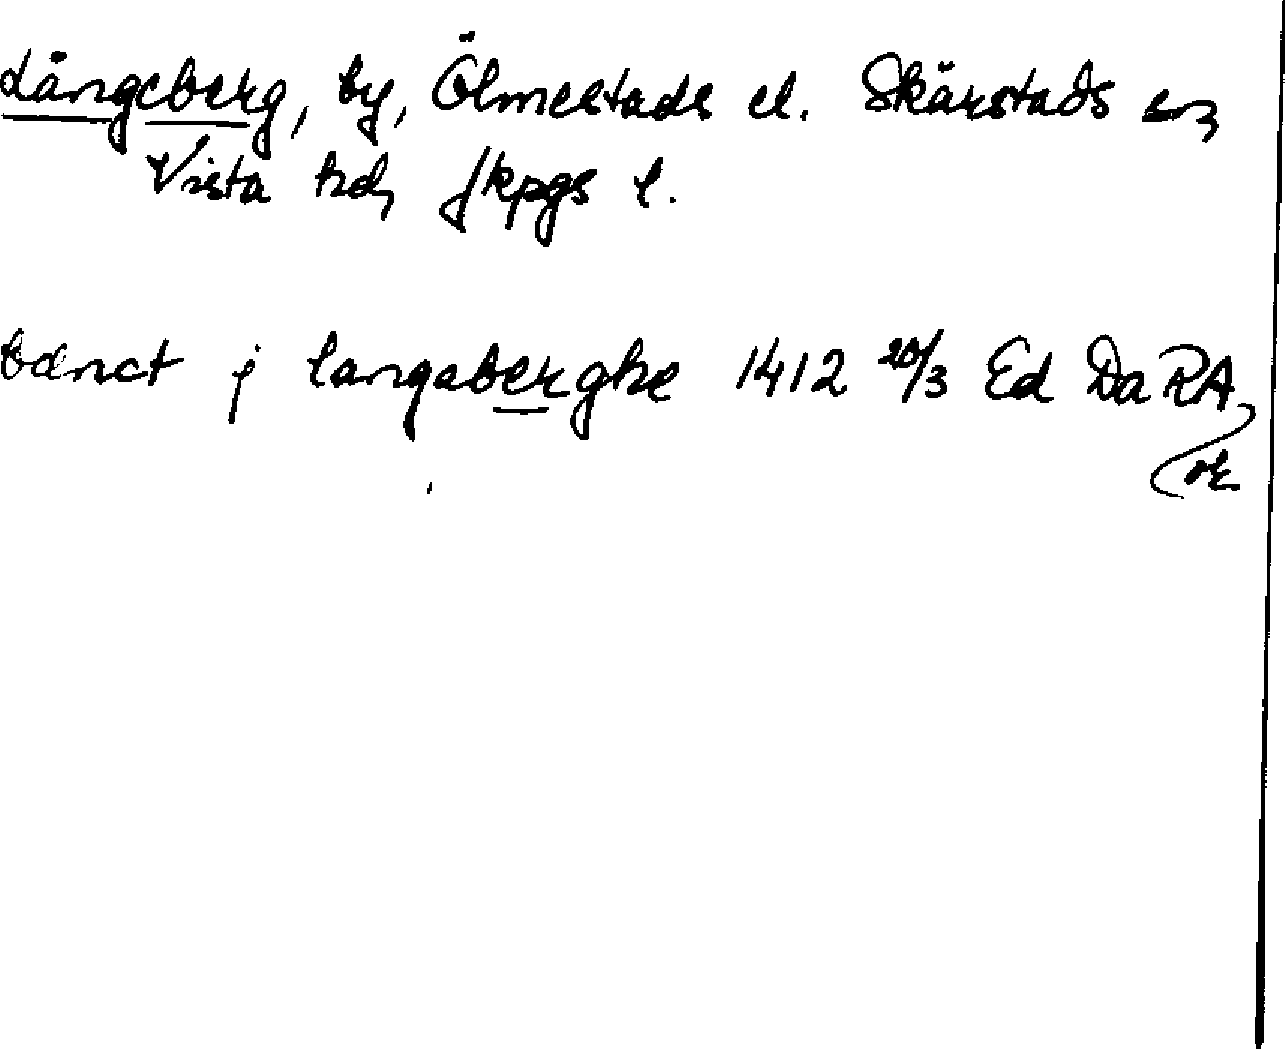 Långeberg, by, Ölmestads el. Skärstads sn,
Vista hd, Jkpgs l.
bænct j langaberghe 1412 20/3 Ed Da RA,
or.